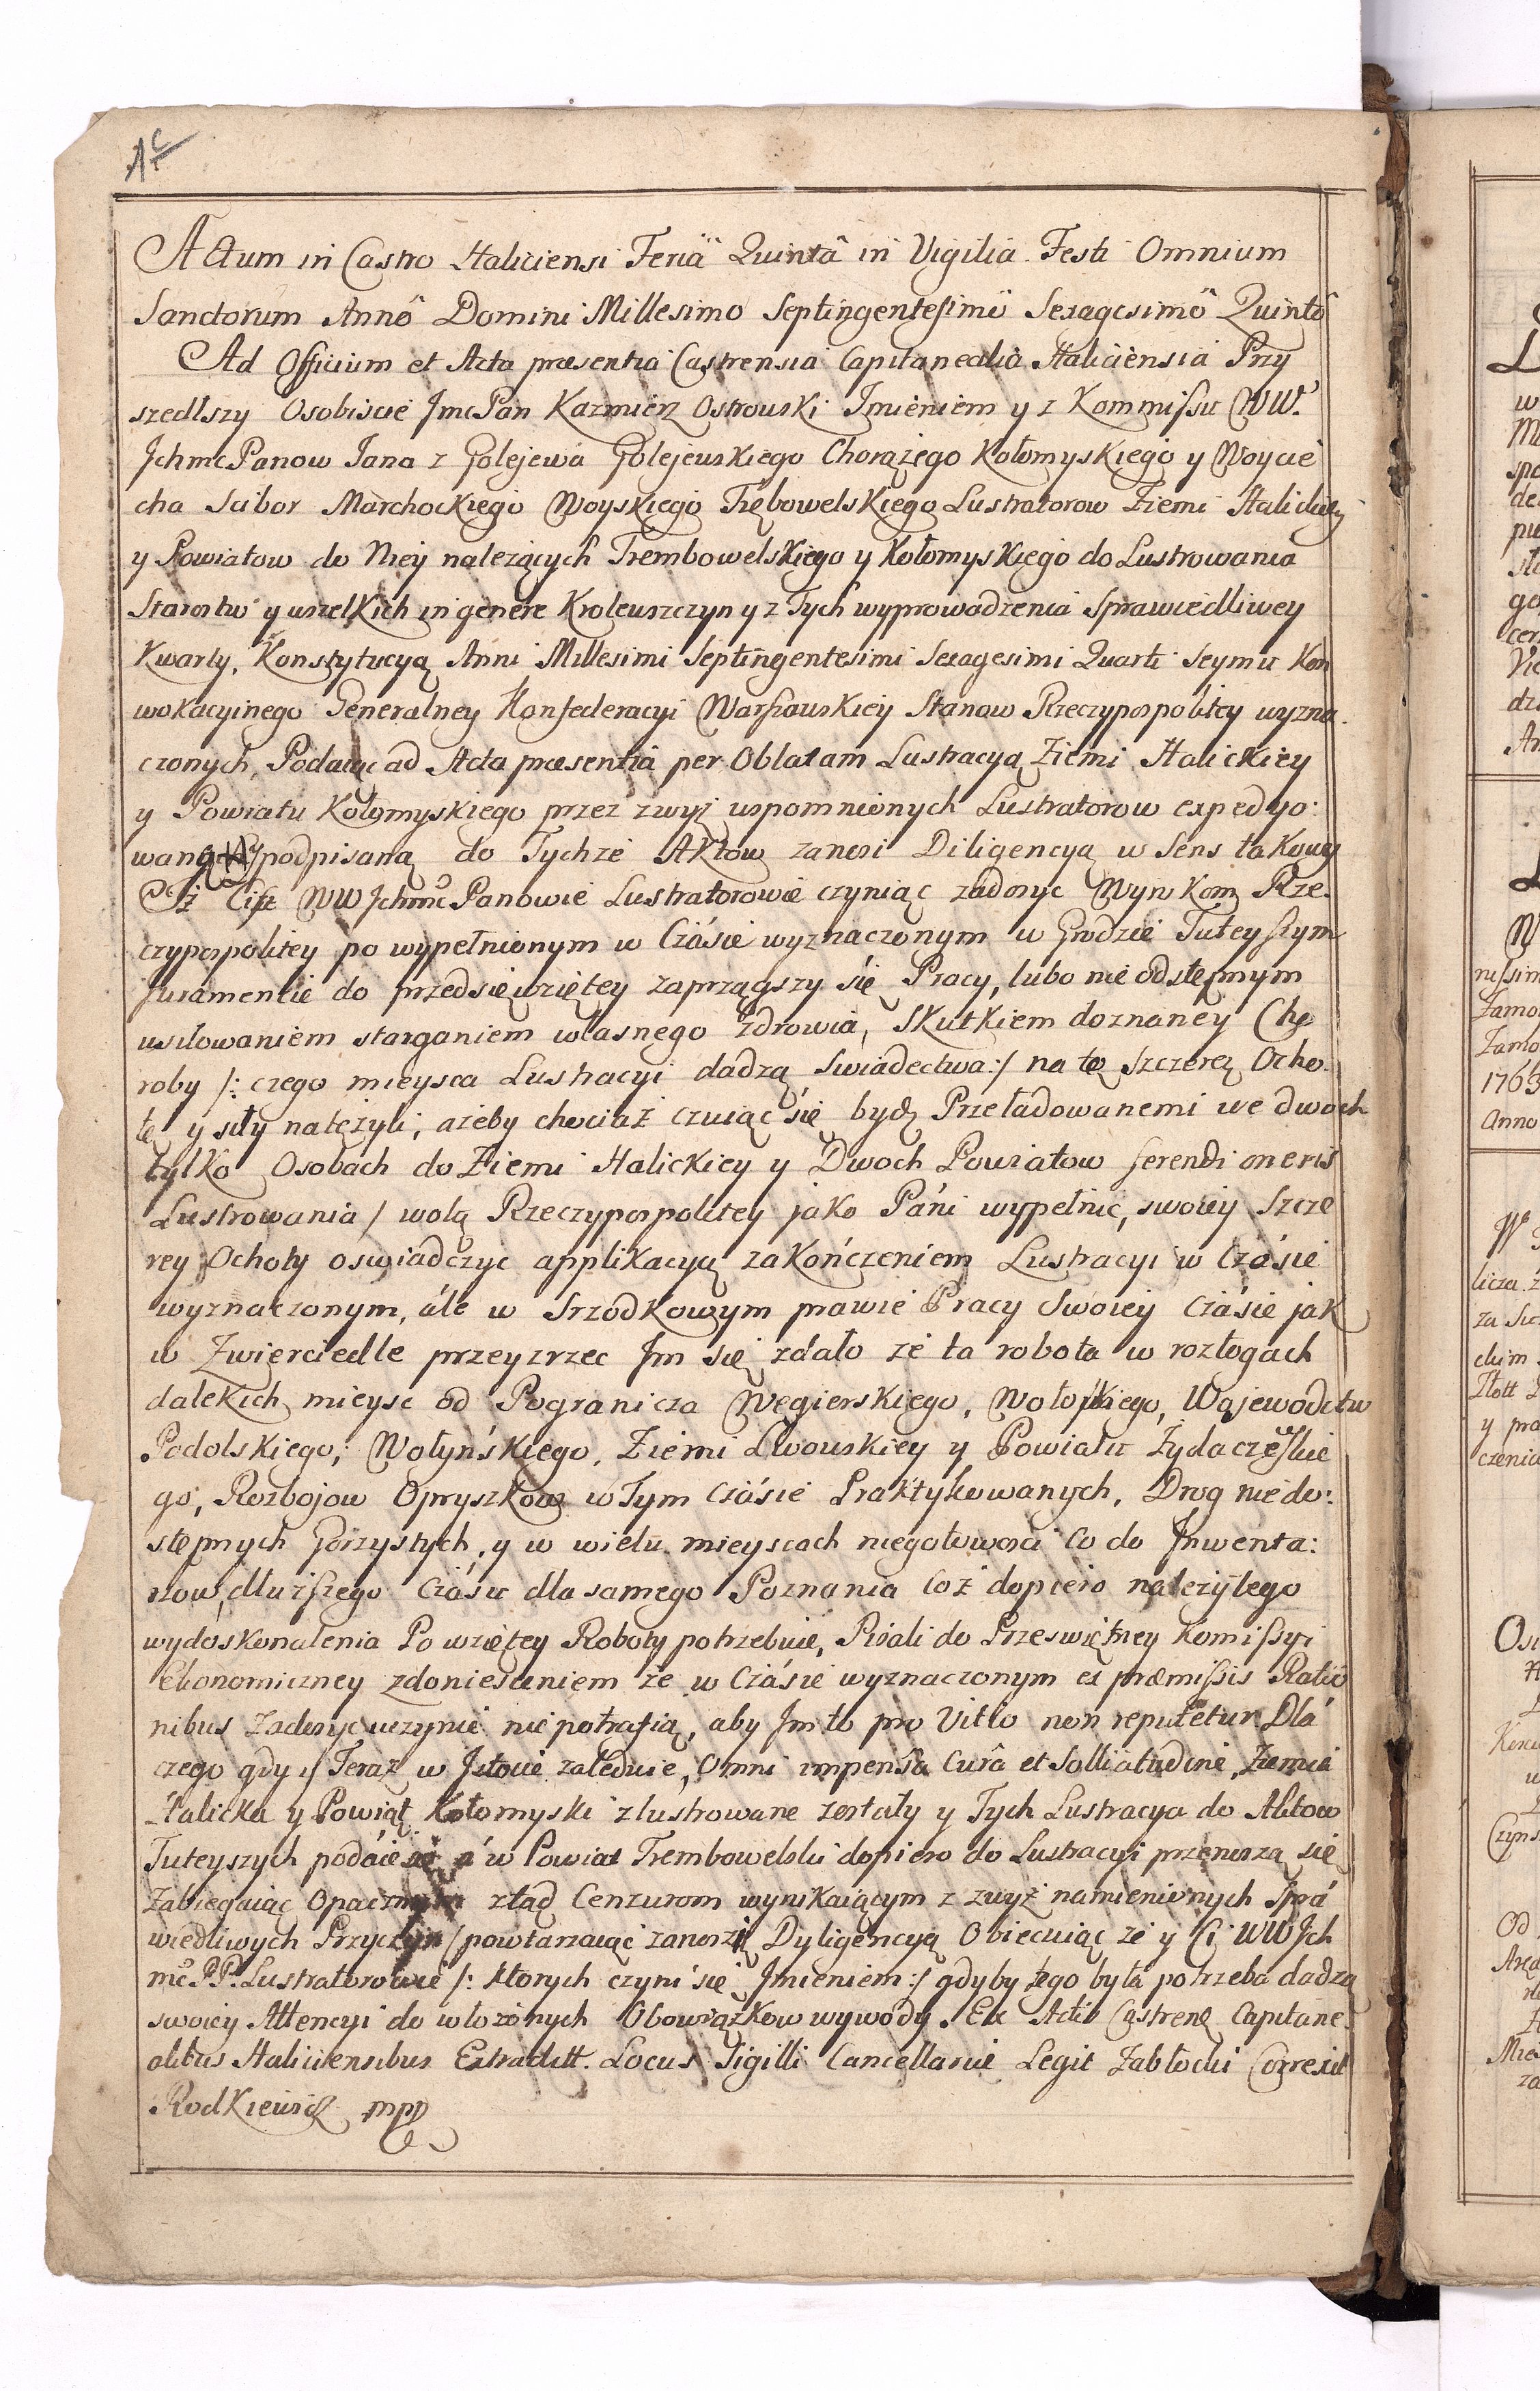 Actum in Castro Haliciensi Feriâ Quintâ in Vigilia Festi Omnium
Sanctorum Annô Domini Millesimo Septingentesimô Sexagesimô Quintô
Ad Officium et Acta præsentia Castrensia Capitanealia Haliciensia Przy
szedłszy Osobiscie Jmc Pan Kazmierz Ostrowski Imieniem y z Kommissu WW.
Jchmc Panow Jana z Golejewa Golejewskiego Chorążego Kołomyskiego y Woycie
cha Scibor Marchockiego Woyskiego Trębowelskiego Lustratorow Ziemi Halickiey
y Powiatow do Niey nalezących Trembowelskiego y Kołomyskiego do Lustrowania
Starostw y wszelkich in genere Krolewszczyn y z Tych wyprowadzenia Sprawiedliwey
Kwarty, Konstytucyą Anni Millesimi Septingentesimi Sexagesimi Quarti Seymu Kon
wokacyinego Generalney Konfederacyi Warszawskiey Stanow Rzeczypospolitey wyzna
czonych, Podaiąc ad Acta præsentia per Oblatam Lustracyą Ziemi Halickiey
y Powiatu Kołomyskiego przez zwyż wspomnionych Lustratorow expedyo:
waną y podpisaną do Tychże Aktow zanosi Diligencyą w Sens takowy
Iż Ciż WW Jchmć Panowie Lustratorowie czyniąc zadosyc Wyrokom Rze
czypospolitey po wypełnionym w Cżásie wyznaczonym w Grodzie Tuteyszym
Juramencie do przedsięwziętey zaprzągszy się Pracy, lubo nieodstępnym
usiłowaniem starganiem własnego Zdrowia, Skutkiem doznaney Cho
roby /: czego mieysca Lustracyi dadzą Swiadectwa :/ na tę Szczerą Ocho
tę y siły natężyli, ażeby chociaż czuiąc się bydź Przeładowanemi we dwoch
tylko Osobach do Ziemi Halickiey y Dwoch Powiatow ferendi oneris
Lustrowania / wolą Rzeczypospolitey jako Páni wypełnic, swoiey Szcze
rey Ochoty oswiadczyc applikacyą zakończeniem Lustracyi w Czásie
wyznaczonym, ále w Srzodkowym prawie Pracy Swoiey Czásie jak
w Zwierciedle przeyzrzec Im się zdało że ta robota w rozłogach
dalekich mieysc od Pogranicza Węgierskiego, Wołoskiego, Wojewodctw
Podolskiego, Wołyńskiego, Ziemi Lwowskiey y Powiatu Żydaczewskie
go, Rozbojow Opryszkow w Tym Czásie Praktykowanych, Drog niedo:
stępnych Gorzystych, y w wielu mieyscach niegotowosci Co do Inwenta:
rzow, dłuższego Czásu dla samego Poznania Coż dopiero należytego
wydoskonalenia Powziętey Roboty potrzebuie, Pisali do Przeswiętney Komissyi
Ekonomiczney z doniesieniem że w Czásie wyznaczonym ex præmissis Ratio
nibus Zadosyc uczynic nie potrafią, aby Im to pro Vitio non reputetur. Dlá
czego gdy y Teraz w Istocie zaledwie, Omni impensa Curâ et Sollicitudine, Ziemia
Halicka y Powiat Kołomyski zlustrowane zostały y Tych Lustracya do Aktow
Tuteyszych podáie się á w Powiat Trembowelski dopiero do Lustracyi przenoszą się
Zabiegaiąc Opacznym ztąd Cenzurom wynikaiącym z zwyż namienionych Sprá
wiedliwych Przyczyn / powtarzaiąc zanoszą Dyligencyą Obiecuiąc że y Ci WWJch
mć PP. Lustratorowie /: ktorych czyni się Imieniem :/ gdyby tego była potrzeba dadzą
swoiey Attencyi do włożonych Obowiązkow wywody. Ex Actis Castren Capitane
alibus Haliciensibus Extraditt. Locus Sigilli Cancellariæ Legit Zabłocki Correxit
Rodkiewicz mpp